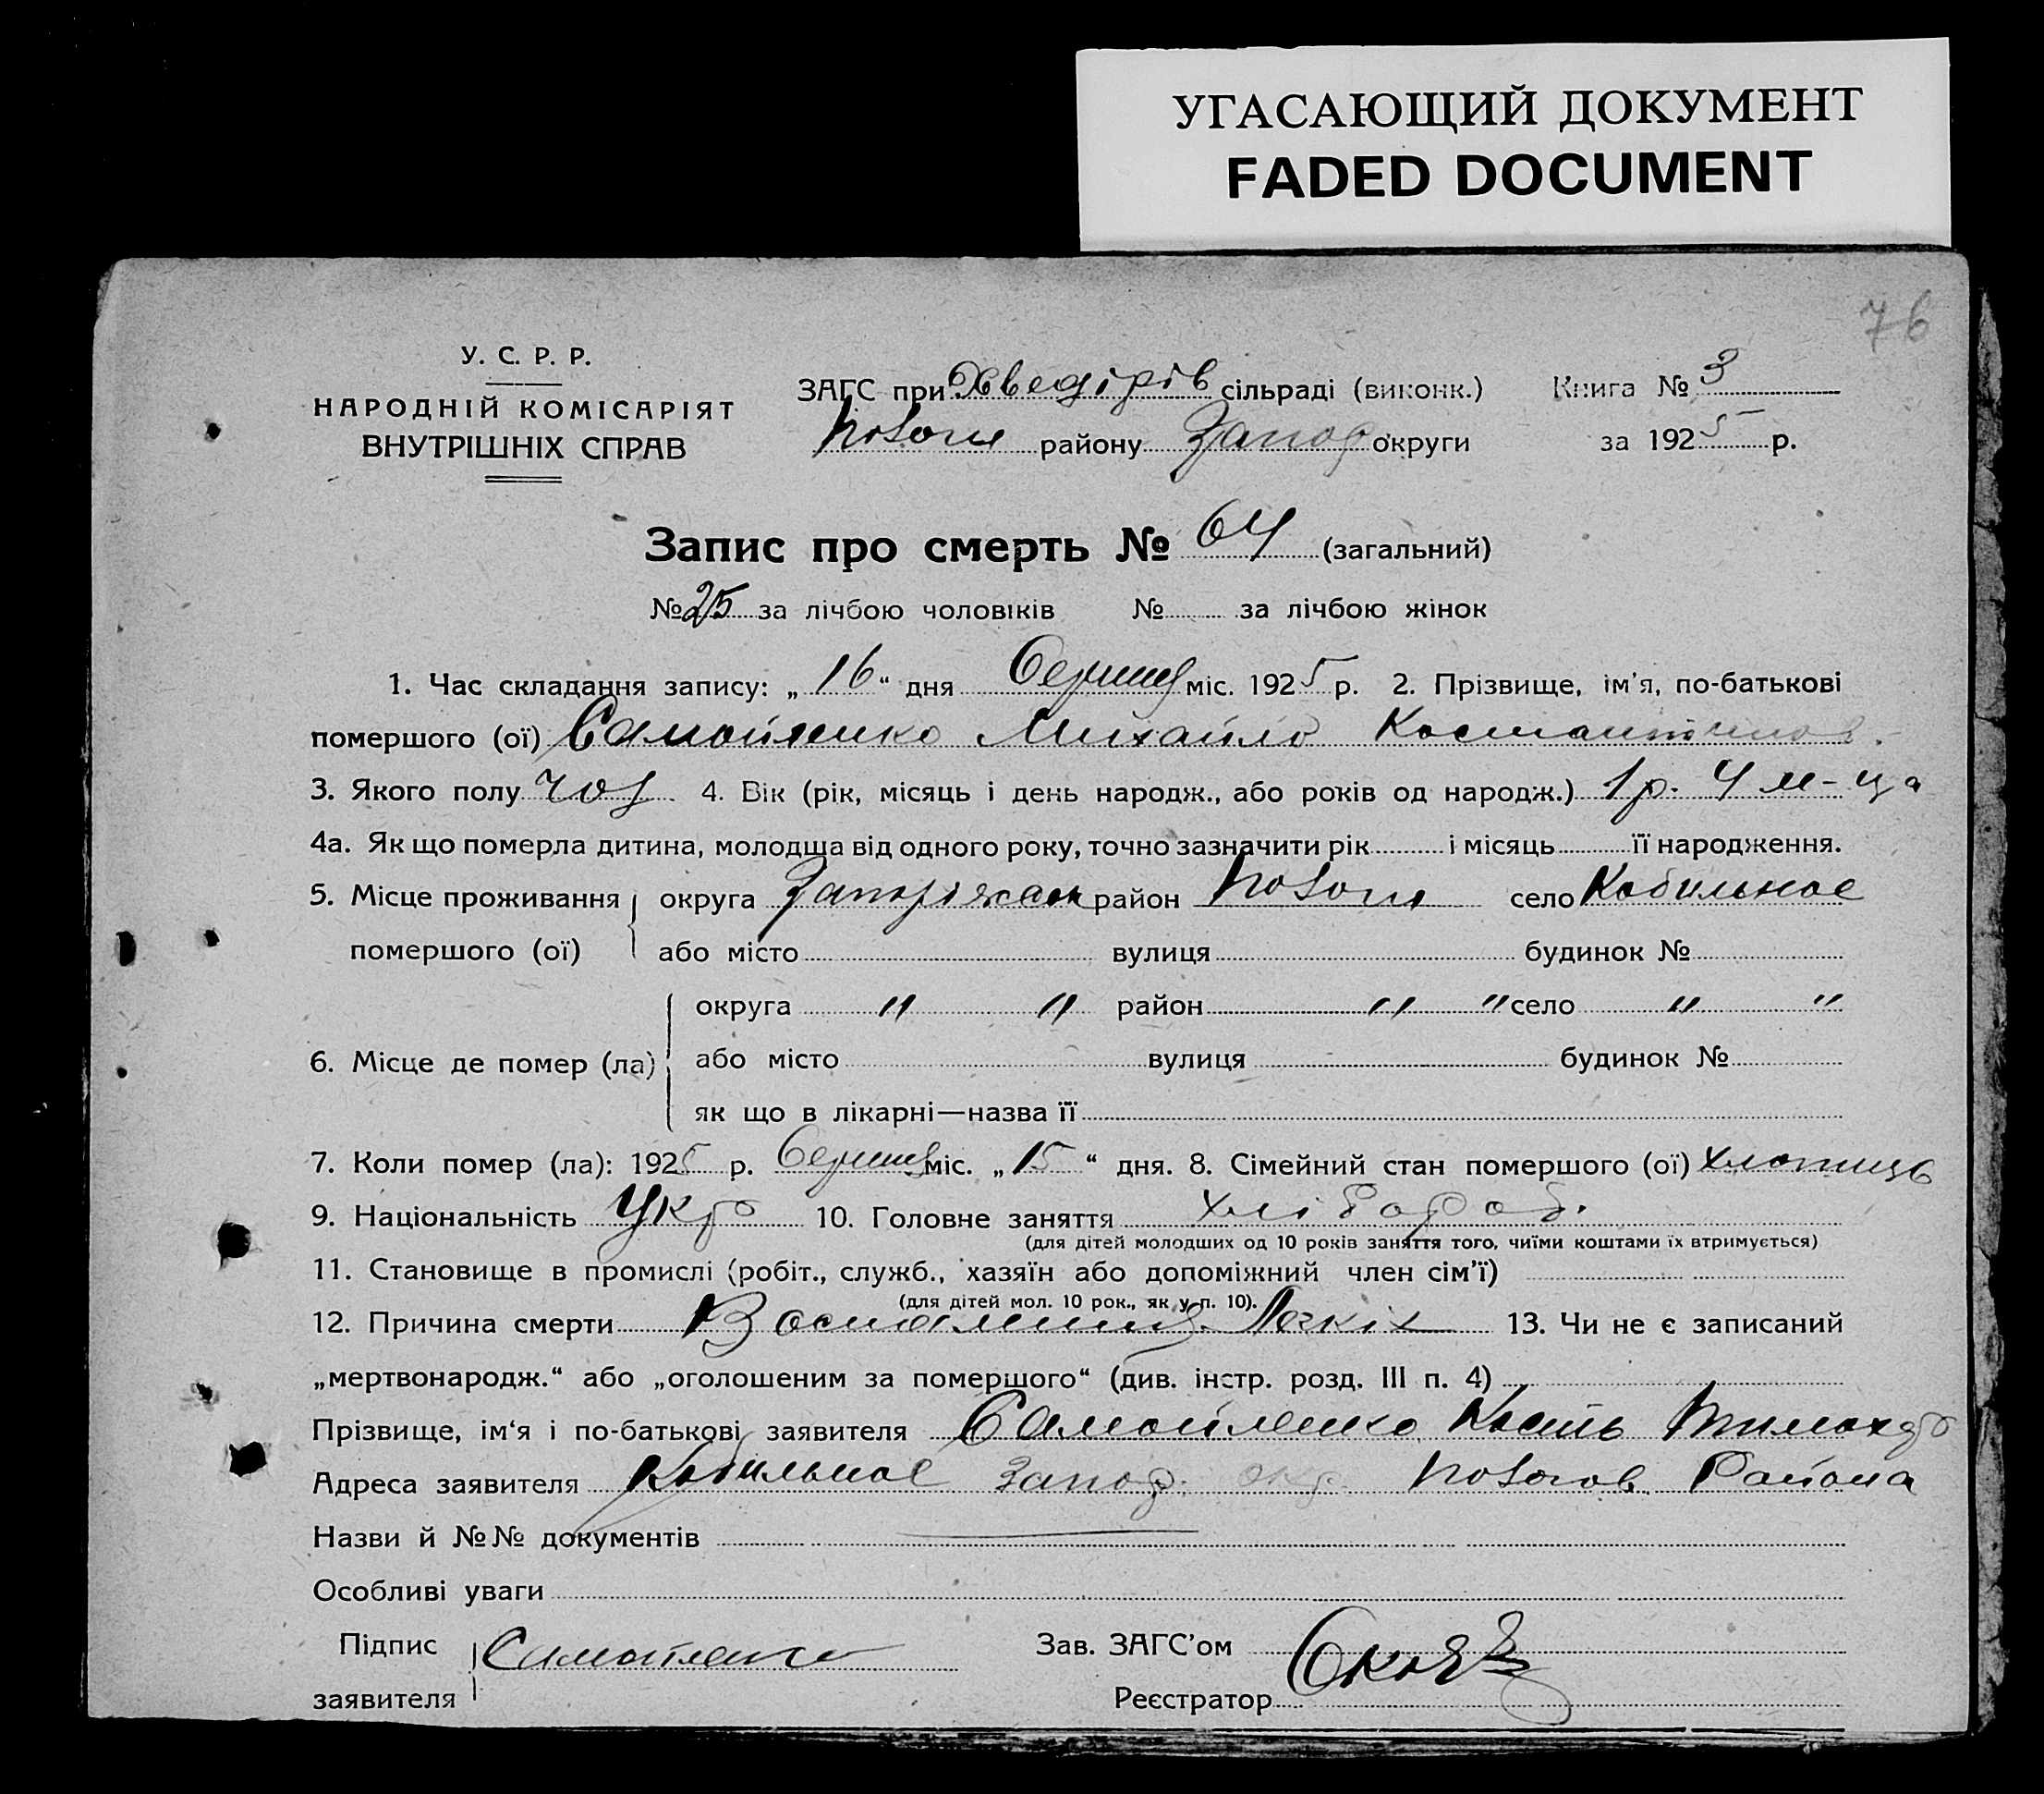 УГАСАЮЩИЙ ДОКУМЕНТ
FADED DOCUMENT
76
У. С. Р. Р.
НАРОДНІЙ КОМІСАРІЯТ
ВНУТРІШНІХ СПРАВ
ЗАГС при Хведірів сільраді (виконк.) Книга № 3
району Запор округи за 1925 р.
Запис про смерть № 64 (загальний)
№ 25 за лічбою чоловіків № за лічбою жінок
1. Час складання запису: „16“ дня міс. 1925 р. 2. Прізвище, ім'я, по-батькові
помершого (ої) Самойленко Михайло Костантинов.
3. Якого полу чол 4. Вік (рік, місяць і день народж., або років од народж.) 1 р. 4 м-ца
4а. Як що померла дитина, молодша від одного року, точно зазначити рік і місяць її народження.
5. Місце проживання округа район село Кобильное
помершого (ої) або місто вулиця будинок №
округа " " район " " село " "
6. Місце де помер (ла) або місто вулиця будинок №
як що в лікарні—назва її
7. Коли помер (ла): 1925 р. міс. „15“ дня. 8. Сімейний стан помершого (ої) хлопиць
9. Національність Укр 10. Головне заняття хлібороб.
(для дітей молодших од 10 років заняття того, чиїми коштами їх втримується)
11. Становище в промислі (робіт., служб., хазяїн або допоміжний член сім'ї)
(для дітей мол. 10 рок., як у п. 10).
12. Причина смерти Воспаления Легкіх 13. Чи не є записаний
„мертвонародж.“ або „оголошеним за помершого“ (див. інстр. розд. III п. 4)
Прізвище, ім'я і по-батькові заявителя Самойленко Кость
Адреса заявителя Кобильное Запор. окр. Района
Назви й №№ документів
Особливі уваги
Підпис Самойленко Зав. ЗАГС'ом
заявителя Реєстратор